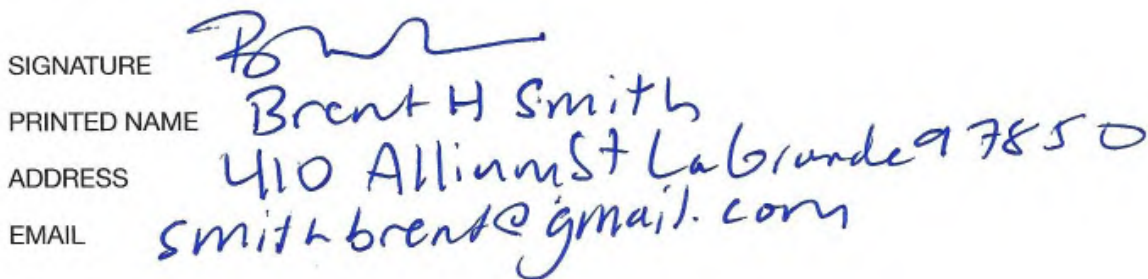 SIGNATURE
PRINTED NAME Brent H Smith
ADDRESS 410 Allium St LaGrande 97850
EMAIL smithbrent@gmail.com